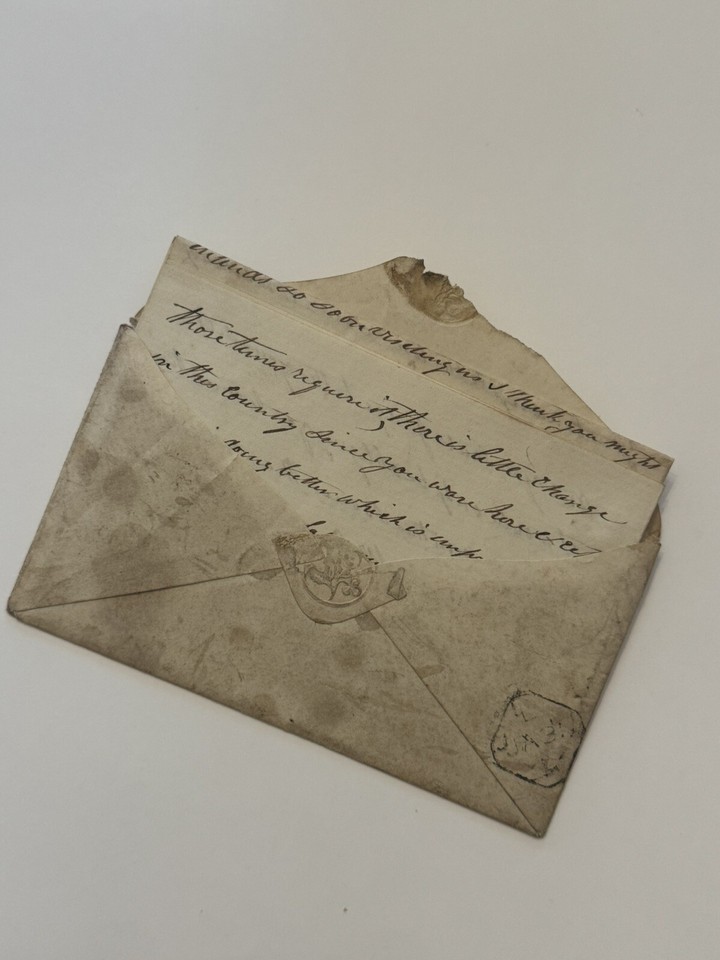 so soon visiting us I think you might
those times require it, there is little Change
in this Country since you were here
better which is